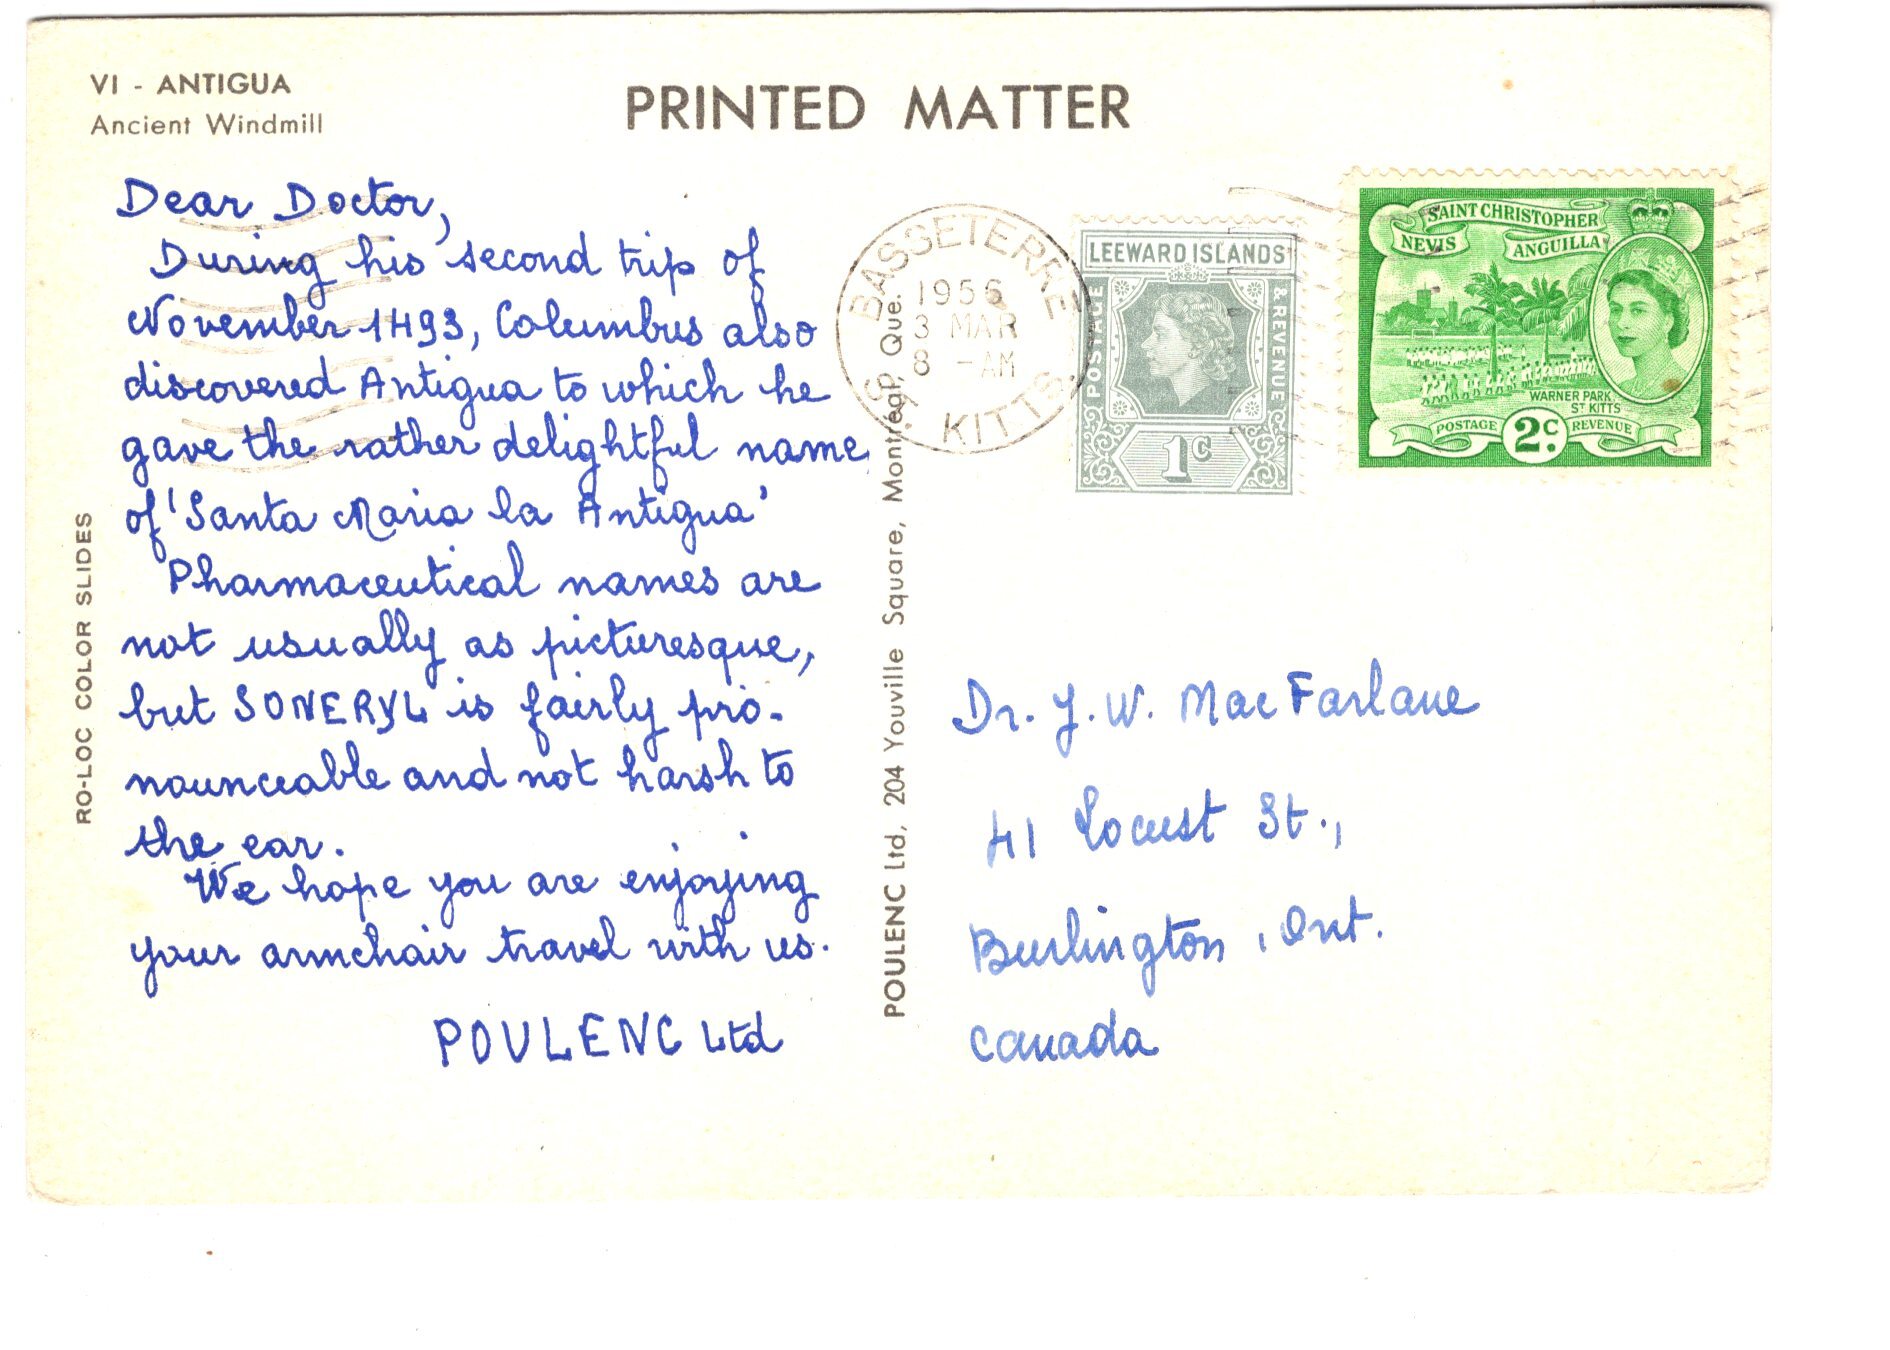 VI - ANTIGUA
Ancient Windmill
PRINTED MATTER
Dear Doctor,
During his second trip of
November 1493, Columbus also
discovered Antigua to which he
gave the rather delightful name
of 'Santa Maria la Antigua'
Pharmaceutical names are
not usually as picturesque,
but SONERYL is fairly pro-
nounceable and not harsh to
the ear.
We hope you are enjoying
your armchair travel with us.
POULENC Ltd
RO-LOC COLOR SLIDES
POULENC Ltd, 204 Youville Square, Montréal, Que.
BASSETERRE
1956
3 MAR
8 -AM
ST. KITTS.
LEEWARD ISLANDS
POSTAGE
& REVENUE
1c
SAINT CHRISTOPHER
NEVIS
ANGUILLA
WARNER PARK
ST KITTS
POSTAGE
2c.
REVENUE
Dr. J. W. MacFarlane
41 Locust St.,
Burlington, Ont.
Canada